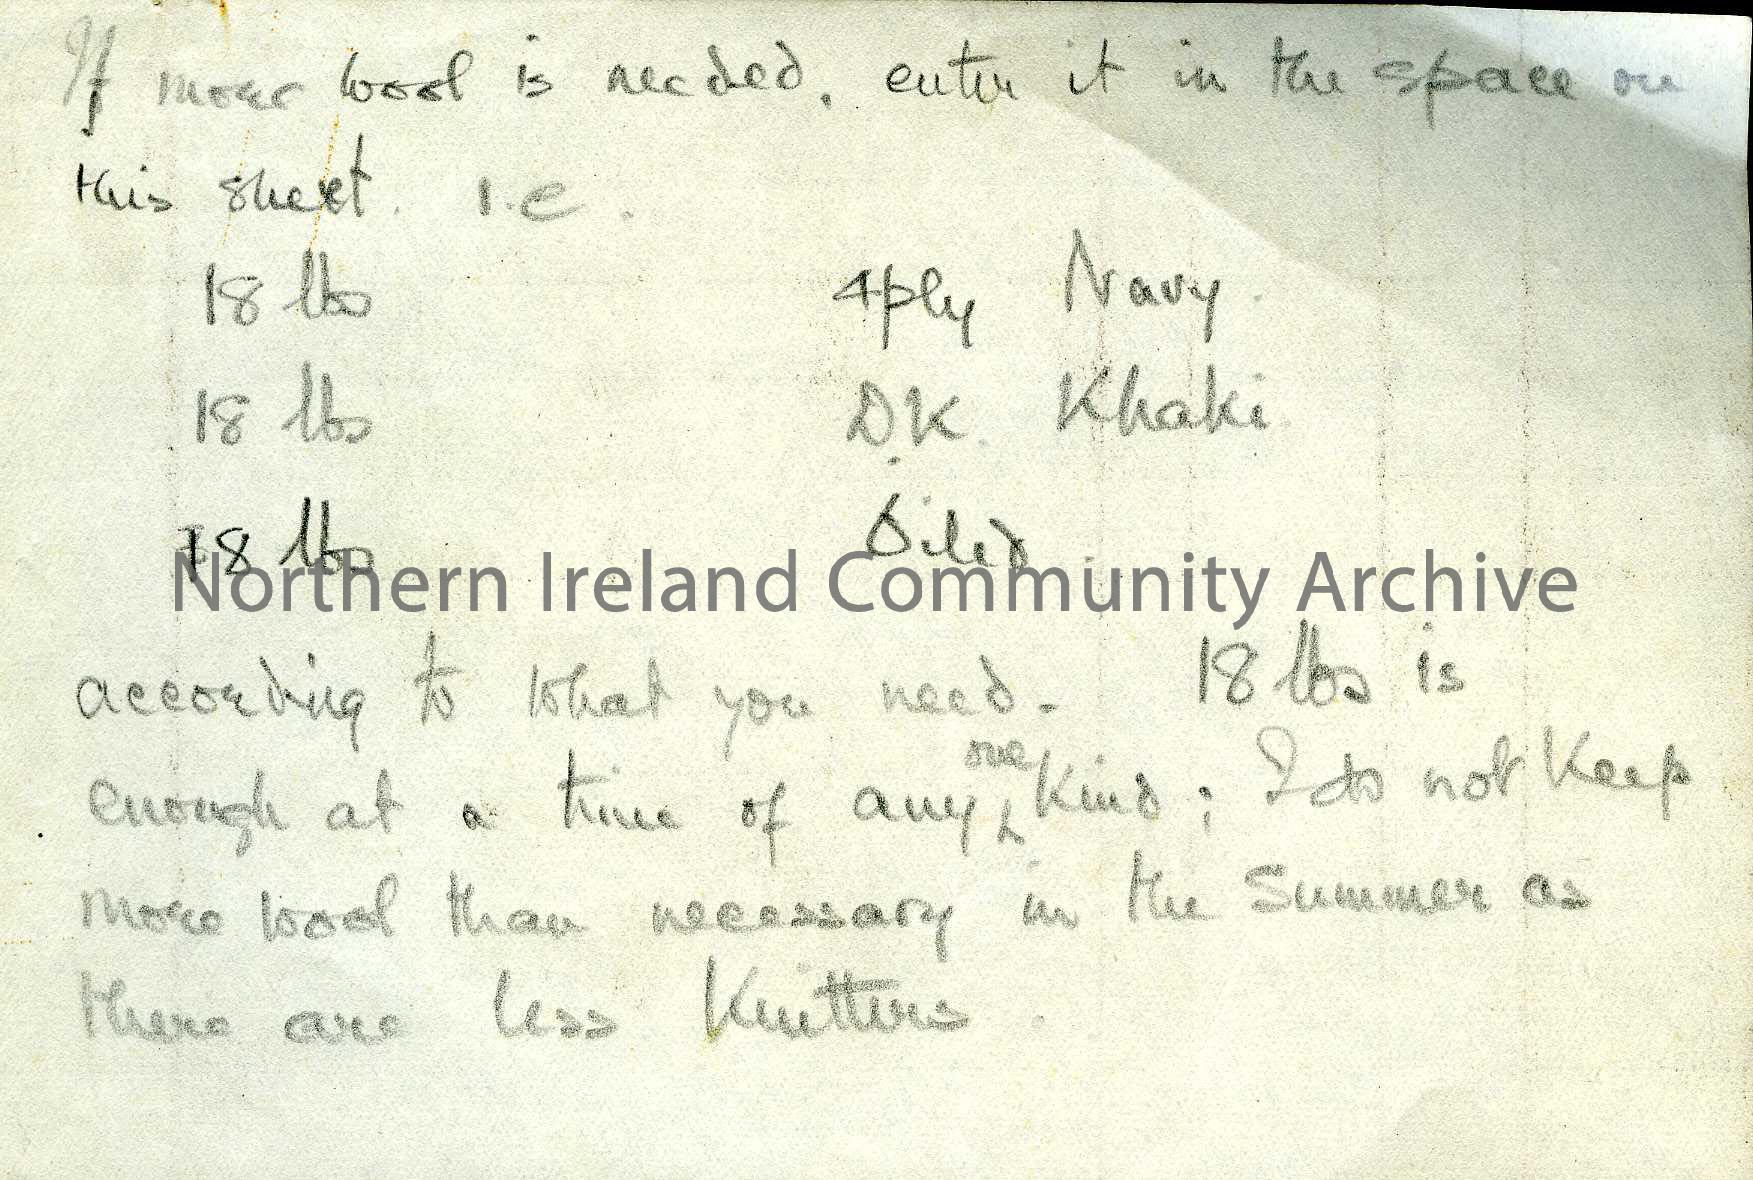 If more wool is needed, enter it in the space on
this sheet. i.e.
18 lbs 4ply Navy.
18 lbs D.K. Khaki
18 lbs Oiled
Northern Ireland Community Archive
according to what you need. 18 lbs is
enough at a time of any one kind; I do not keep
more wool than necessary in the summer as
there are less knitters.